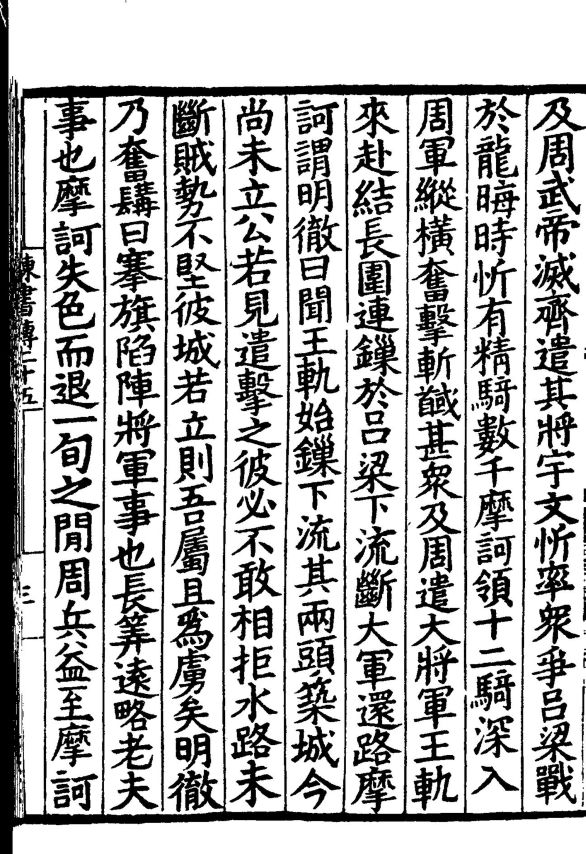 及周武帝滅齊遣其將宇文忻率衆爭呂梁戰
於龍晦時忻有精騎數千摩訶領十二騎深入
周軍縱橫奮擊斬馘甚衆及周遣大將軍王軌
來赴結長圍連鏁於呂梁下流斷大軍還路摩
訶謂明徹曰聞王軌始鏁下流其兩頭築城今
尚未立公若見遣擊之彼必不敢相拒水路未
斷賊勢不堅彼城若立則吾屬且爲虜矣明徹
乃奮髯曰搴旗陷陣將軍事也長筭遠略老夫
事也摩訶失色而退一旬之閒周兵益至摩訶
陳書傳二十五
三